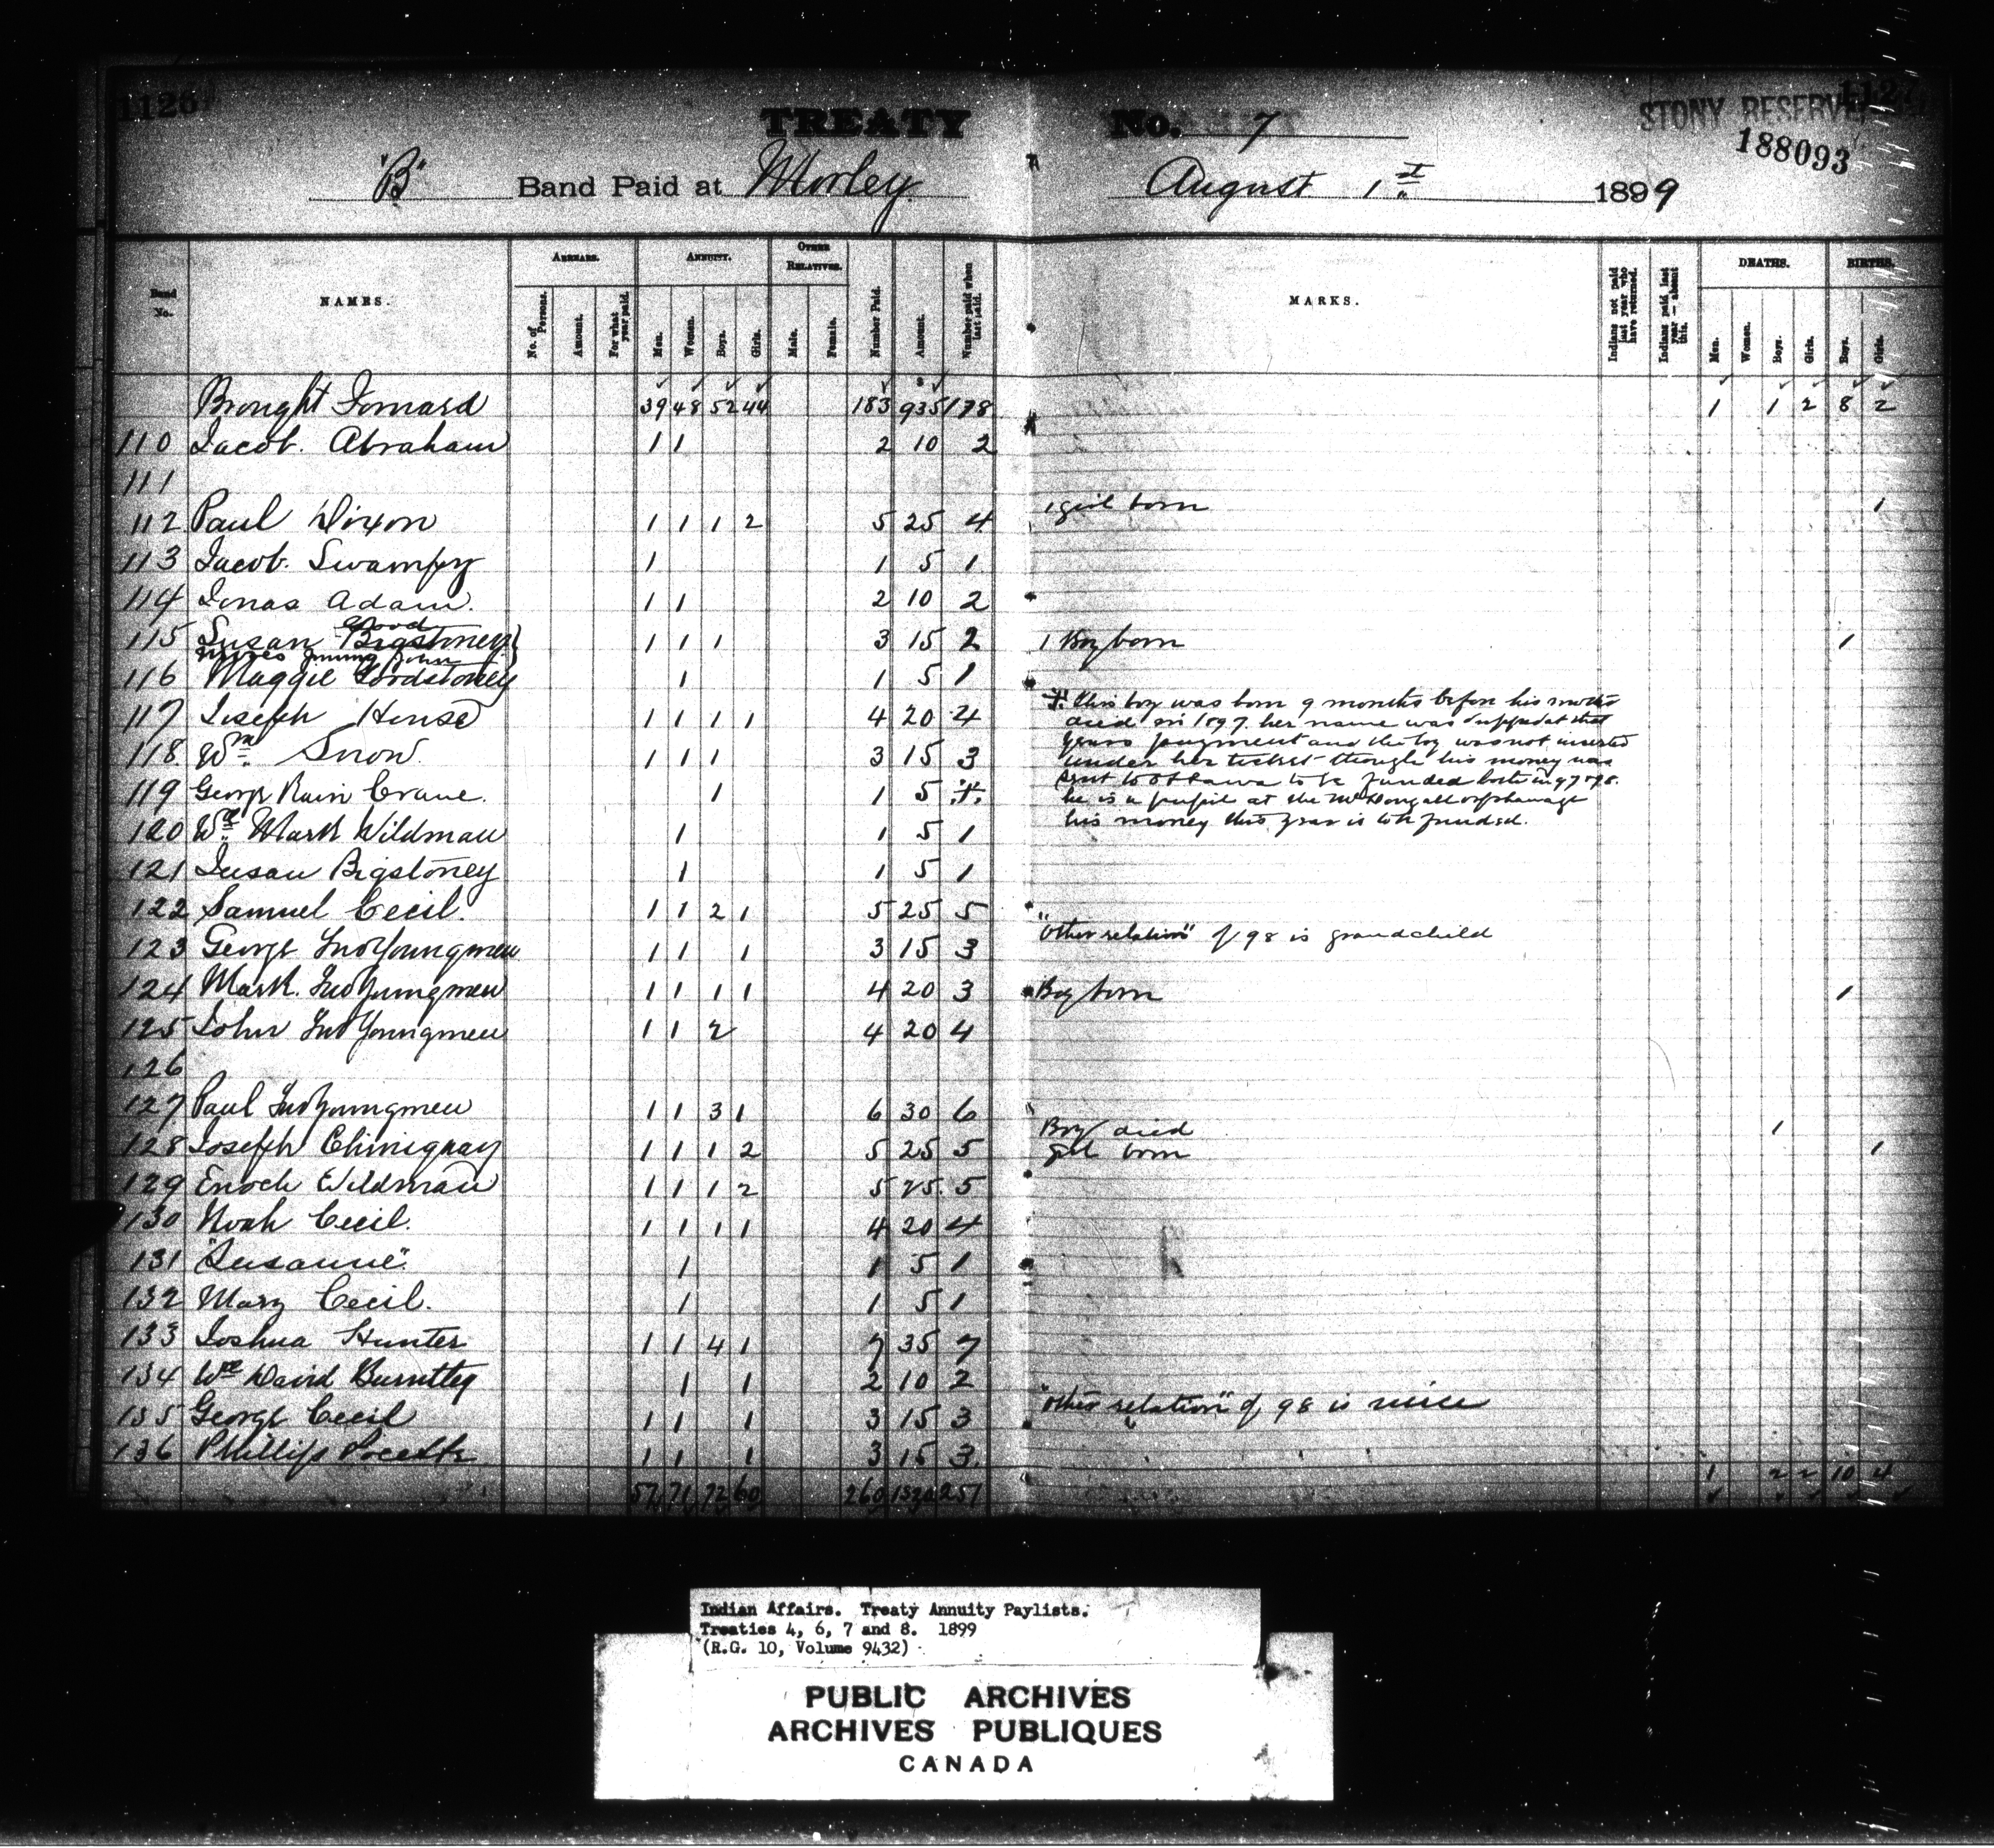 1126
TREATY No. 7
STONY RESERVE
1127
188093
"B" Band Paid at Morley August 1st 1899
Band No.
NAMES.
ARREARS.
No. of Persons.
Amount.
For what year paid.
ANNUITY.
Men.
Women.
Boys.
Girls.
OTHER RELATIVES.
Male.
Female.
Number Paid.
Amount.
Number paid when last paid.
MARKS.
Indians not paid last year who have returned.
Indians paid last year — absent this.
DEATHS.
Men.
Women.
Boys.
Girls.
BIRTHS.
Boys.
Girls.
Brought Forward 39 48 52 44 183 935 178 1 1 2 8 2
110 Jacob. Abraham 1 1 2 10 2
111
112 Paul Dixon 1 1 1 2 5 25 4 1 girl born 1
113 Jacob. Swampy 1 1 5 1
114 Jonas Adam. 1 1 2 10 2
115 Susan Good Bigstoney 1 1 1 3 15 2 1 Boy born 1
Moses Young John
116 Maggie Goodstoney 1 1 5 1
117 Joseph House 1 1 1 1 4 20 4
118 Wm Snow. 1 1 1 3 15 3
119 George Rain Crane. 1 1 5 #
# this boy was born 9 months before his mother
died in 1897 her name was dropped at that
years payment and the boy was not inserted
under her ticket though his money was
sent to Ottawa to be funded both in 97 & 98.
he is a pupil at the McDougall orphanage
his money this year is to be funded.
120 Wd. Mark Wildman 1 1 5 1
121 Susan Bigstoney 1 1 5 1
122 Samuel Cecil. 1 1 2 1 5 25 5
123 George Twoyoungmen 1 1 1 3 15 3 "Other relation" of 98 is grandchild
124 Mark. Twoyoungmen 1 1 1 1 4 20 3 Boy born 1
125 John Twoyoungmen 1 1 2 4 20 4
126
127 Paul Twoyoungmen 1 1 3 1 6 30 6
128 Joseph Chiniquay 1 1 1 2 5 25 5 Boy died 1
Girl born 1
129 Enoch Wildman 1 1 1 2 5 25. 5
130 Noah Cecil. 1 1 1 1 4 20 4
131 "Susanne" 1 1 5 1
132 Mary Cecil. 1 1 5 1
133 Joshua Hunter 1 1 4 1 7 35 7
134 David 1 1 2 10 2
135 George Cecil 1 1 1 3 15 3 "Other relation" of 98 is niece
136 Phillip 1 1 1 3 15 3.
57 71 72 60 260 1320 251 1 2 2 10 4
Indian Affairs. Treaty Annuity Paylists.
Treaties 4, 6, 7 and 8. 1899
(R.G. 10, Volume 9432)
PUBLIC ARCHIVES
ARCHIVES PUBLIQUES
CANADA